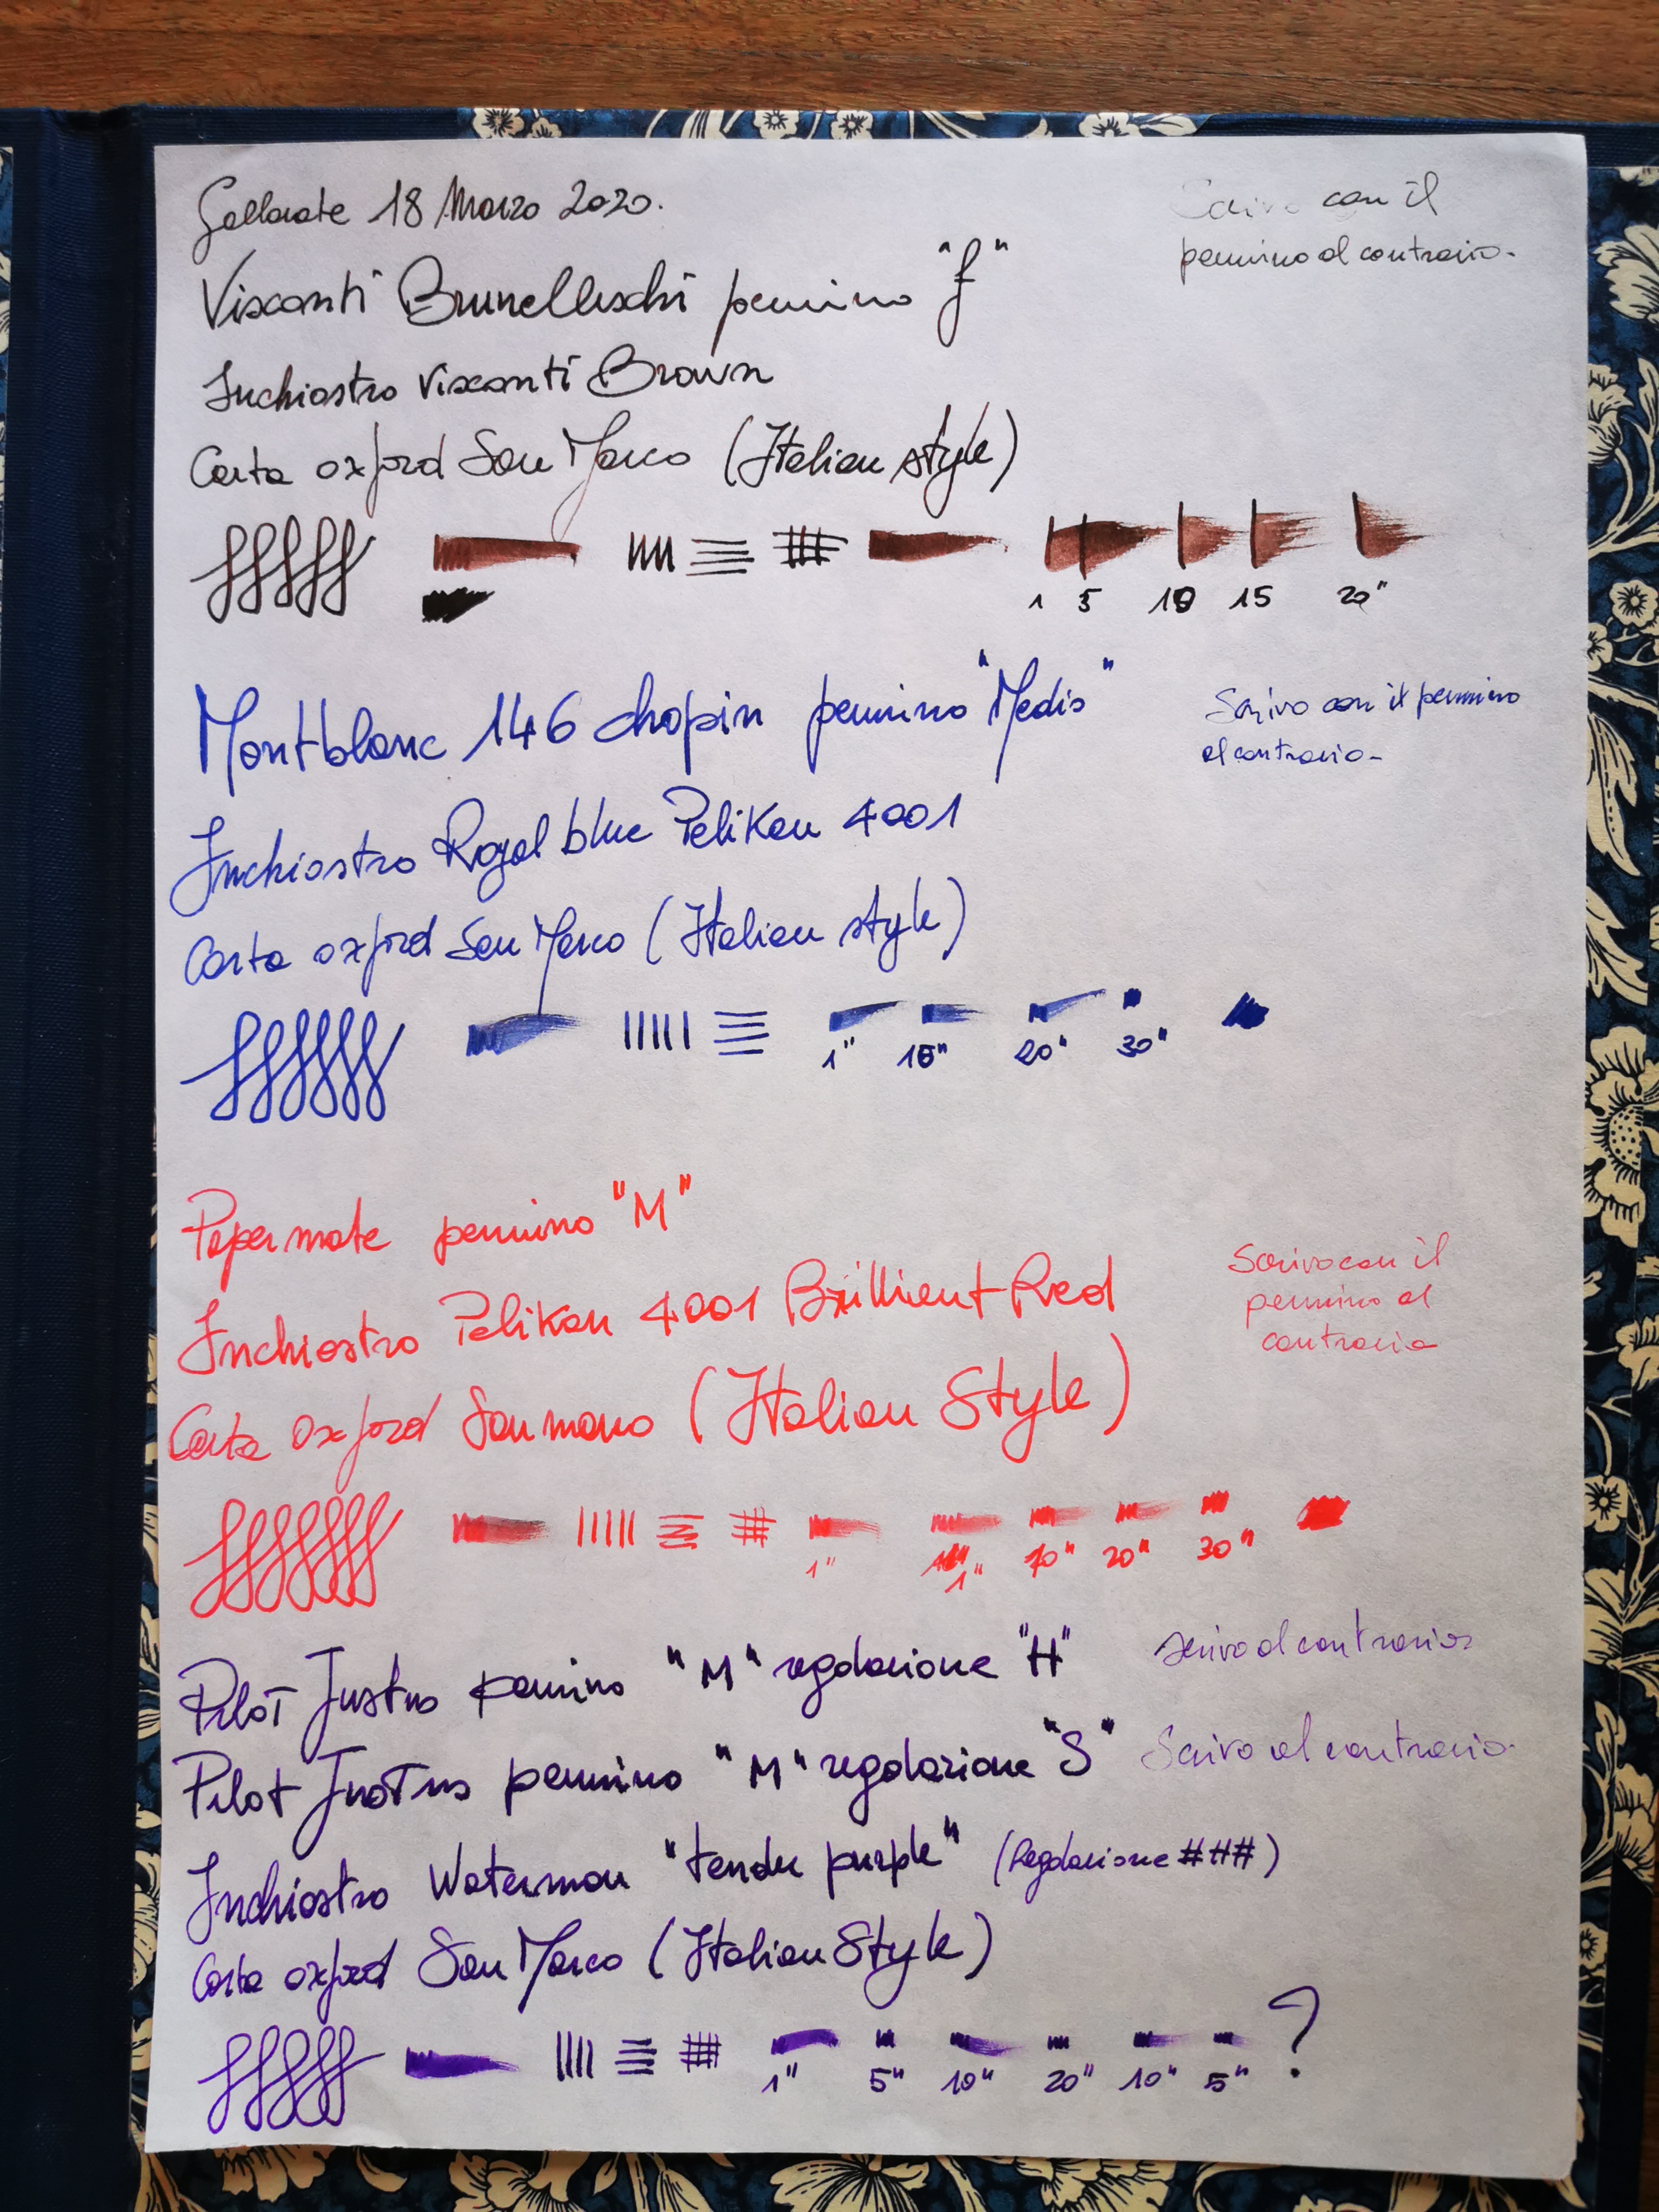 Gallarate 18 Marzo 2020.
Scrivo con il
pennino al contrario.
Visconti Brunelleschi pennino "f"
Inchiostro Visconti Brown
Carta oxford San Marco (Italian style)
1 5 10 15 20"
Montblanc 146 chopin pennino "Medio"
Scrivo con il pennino
al contrario-
Inchiostro Royal blue Pelikan 4001
Carta oxford San Marco (Italian style)
1" 15" 20" 30"
Papermate pennino "M"
Inchiostro Pelikan 4001 Brillient Red
Scrivo con il
pennino al
contrario
Carta Oxford San marco (Italian Style)
1" 1" 10" 20" 30"
Pilot Justus pennino "M" regolazione "H"
scrivo al contrario
Pilot Justus pennino "M" regolazione "S"
Scrivo al contrario.
Inchiostro Waterman "tender purple" (Regolazione ###)
Carta oxford San Marco (Italian Style)
1" 5" 10" 20" 10" 5" ?